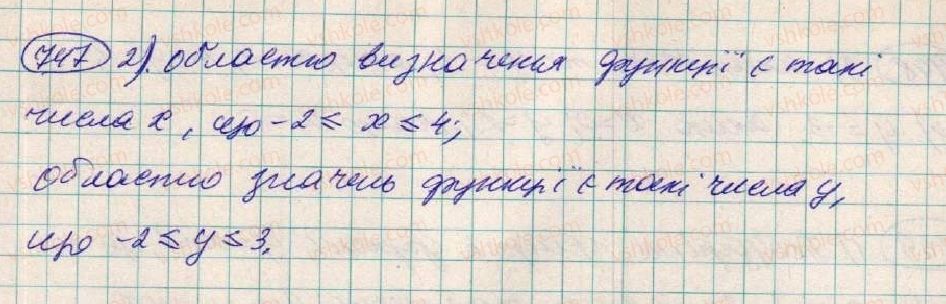 747 2). областю визначення функції є такі
числа x, що -2 ≤ x ≤ 4;
областю значень функції є такі числа y,
що -2 ≤ y ≤ 3.